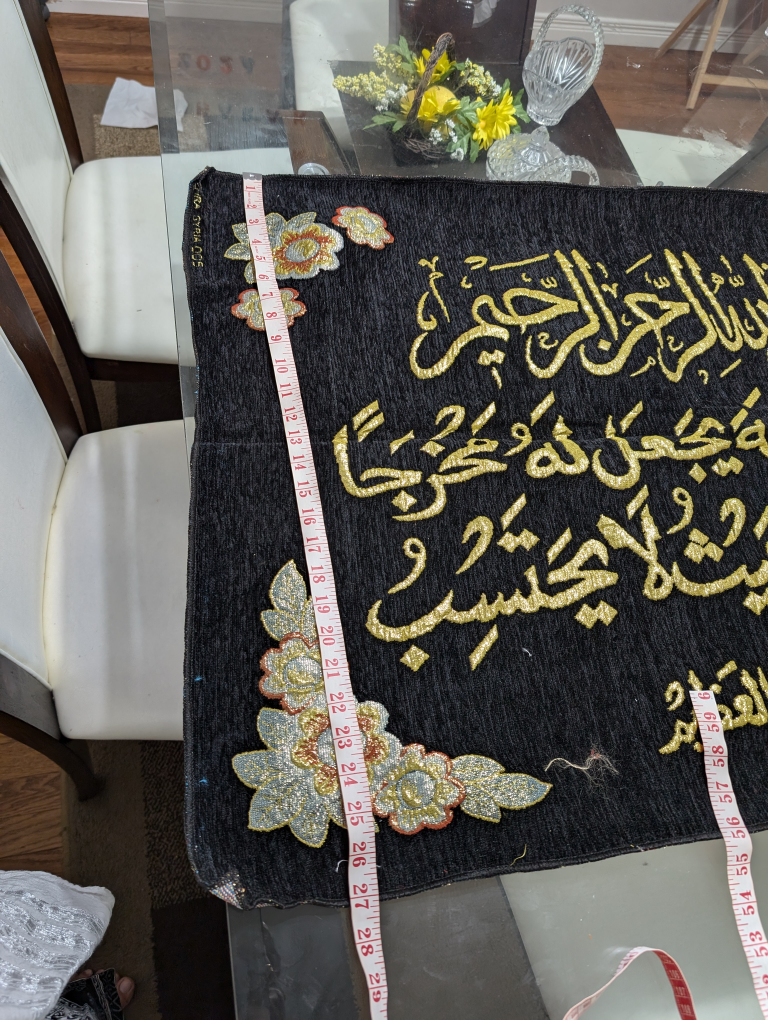 الرحمن الرحيم
يجعل له مخرجاً
لا يحتسب
العظيم
SYRIA 005
1 2 3 4 5 6 7 8 9 10 11 12 13 14 15 16 17 18 19 20 21 22 23 24 25 26 27 28 29
59 58 57 56 55 54 53